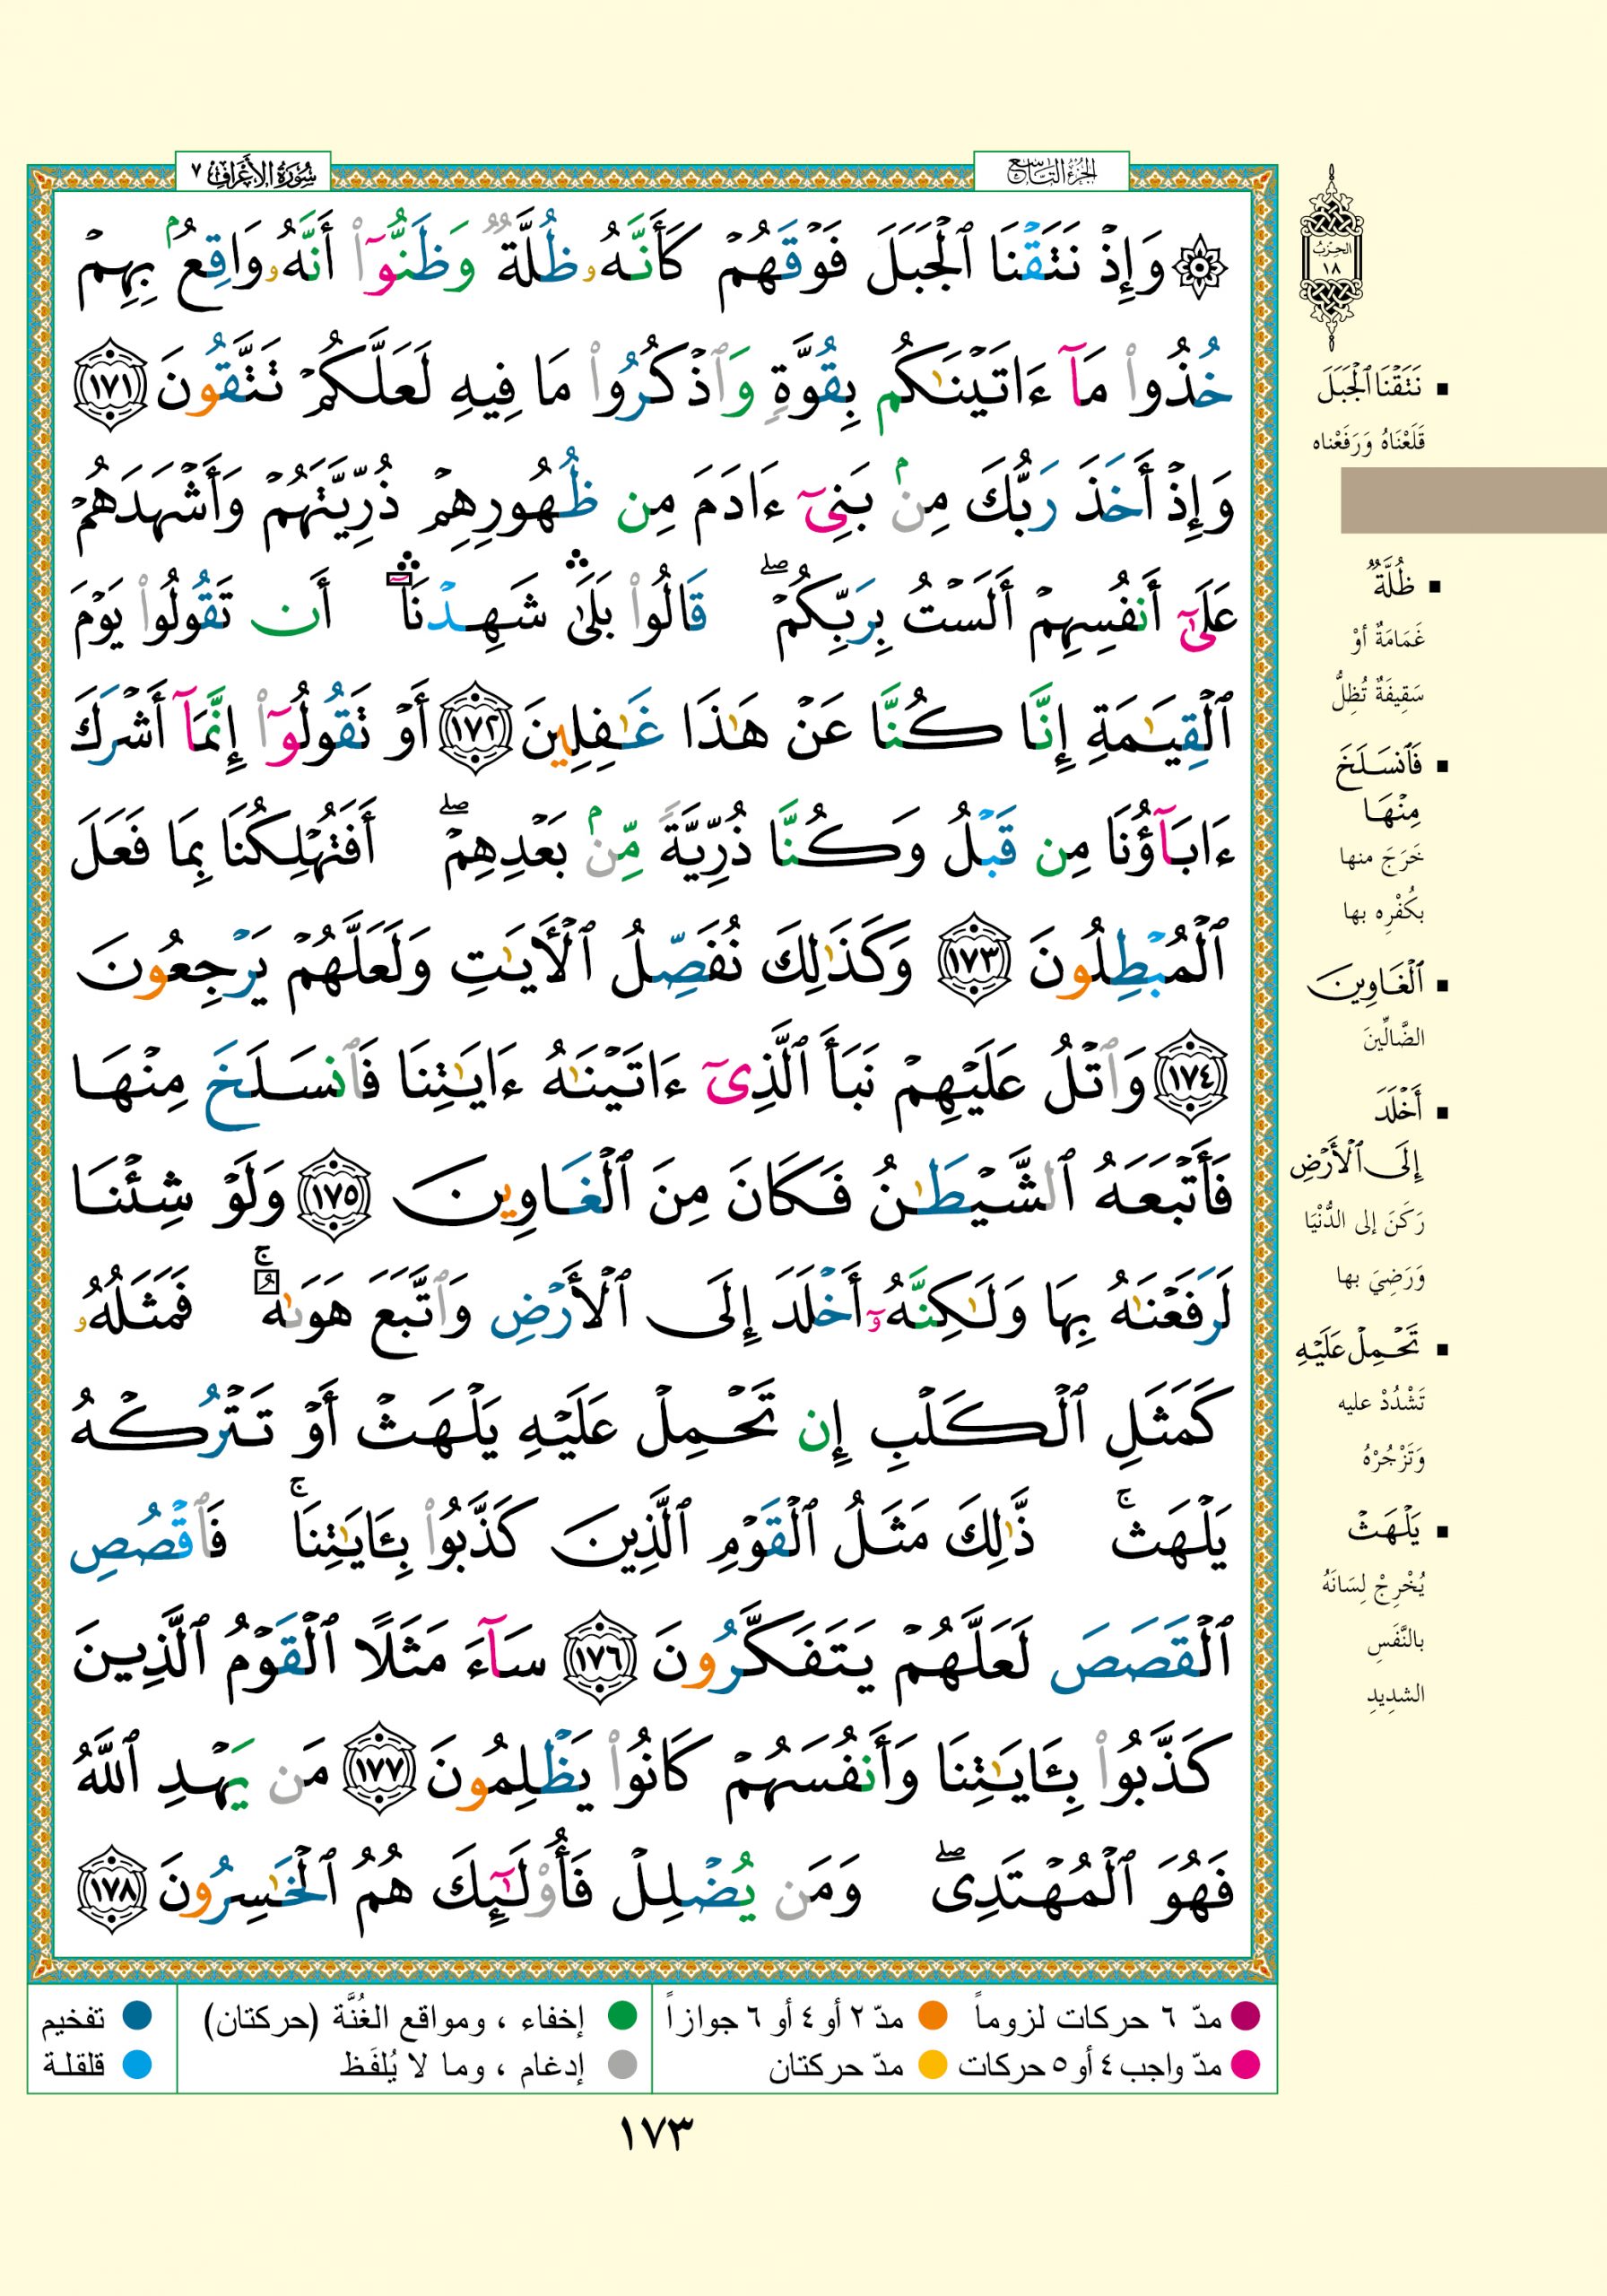 الجزء التاسع
سورة الأعراف ٧
۞ وَإِذۡ نَتَقۡنَا ٱلۡجَبَلَ فَوۡقَهُمۡ كَأَنَّهُۥ ظُلَّةٞ وَظَنُّوٓاْ أَنَّهُۥ وَاقِعُۢ بِهِمۡ
خُذُواْ مَآ ءَاتَيۡنَٰكُم بِقُوَّةٖ وَٱذۡكُرُواْ مَا فِيهِ لَعَلَّكُمۡ تَتَّقُونَ ١٧١
وَإِذۡ أَخَذَ رَبُّكَ مِنۢ بَنِيٓ ءَادَمَ مِن ظُهُورِهِمۡ ذُرِّيَّتَهُمۡ وَأَشۡهَدَهُمۡ
عَلَىٰٓ أَنفُسِهِمۡ أَلَسۡتُ بِرَبِّكُمۡۖ قَالُواْ بَلَىٰۛ شَهِدۡنَآۛ أَن تَقُولُواْ يَوۡمَ
ٱلۡقِيَٰمَةِ إِنَّا كُنَّا عَنۡ هَٰذَا غَٰفِلِينَ ١٧٢ أَوۡ تَقُولُوٓاْ إِنَّمَآ أَشۡرَكَ
ءَابَآؤُنَا مِن قَبۡلُ وَكُنَّا ذُرِّيَّةٗ مِّنۢ بَعۡدِهِمۡۖ أَفَتُهۡلِكُنَا بِمَا فَعَلَ
ٱلۡمُبۡطِلُونَ ١٧٣ وَكَذَٰلِكَ نُفَصِّلُ ٱلۡأٓيَٰتِ وَلَعَلَّهُمۡ يَرۡجِعُونَ
١٧٤ وَٱتۡلُ عَلَيۡهِمۡ نَبَأَ ٱلَّذِيٓ ءَاتَيۡنَٰهُ ءَايَٰتِنَا فَٱنسَلَخَ مِنۡهَا
فَأَتۡبَعَهُ ٱلشَّيۡطَٰنُ فَكَانَ مِنَ ٱلۡغَاوِينَ ١٧٥ وَلَوۡ شِئۡنَا
لَرَفَعۡنَٰهُ بِهَا وَلَٰكِنَّهُۥٓ أَخۡلَدَ إِلَى ٱلۡأَرۡضِ وَٱتَّبَعَ هَوَىٰهُۚ فَمَثَلُهُۥ
كَمَثَلِ ٱلۡكَلۡبِ إِن تَحۡمِلۡ عَلَيۡهِ يَلۡهَثۡ أَوۡ تَتۡرُكۡهُ
يَلۡهَثۚ ذَّٰلِكَ مَثَلُ ٱلۡقَوۡمِ ٱلَّذِينَ كَذَّبُواْ بِـَٔايَٰتِنَاۚ فَٱقۡصُصِ
ٱلۡقَصَصَ لَعَلَّهُمۡ يَتَفَكَّرُونَ ١٧٦ سَآءَ مَثَلًا ٱلۡقَوۡمُ ٱلَّذِينَ
كَذَّبُواْ بِـَٔايَٰتِنَا وَأَنفُسَهُمۡ كَانُواْ يَظۡلِمُونَ ١٧٧ مَن يَهۡدِ ٱللَّهُ
فَهُوَ ٱلۡمُهۡتَدِيۖ وَمَن يُضۡلِلۡ فَأُوْلَٰٓئِكَ هُمُ ٱلۡخَٰسِرُونَ ١٧٨
الحزب
١٨
▪ نَتَقۡنَا ٱلۡجَبَلَ
قَلَعْنَاهُ وَرَفَعْناه
▪ ظُلَّةٞ
غَمَامَةٌ أوْ
سَقِيفَةٌ تُظِلُّ
▪ فَٱنسَلَخَ
مِنۡهَا
خَرَجَ منها
بكُفْرِه بها
▪ ٱلۡغَاوِينَ
الضَّالِّينَ
▪ أَخۡلَدَ
إِلَى ٱلۡأَرۡضِ
رَكَنَ إلى الدُّنْيَا
وَرَضِيَ بها
▪ تَحۡمِلۡ عَلَيۡهِ
تَشْدُدْ عليه
وَتَزْجُرْهُ
▪ يَلۡهَثۡ
يُخْرِجْ لِسَانَهُ
بالنَّفَسِ
الشدِيدِ
مدّ ٦ حركات لزوماً ● مدّ ٢ أو ٤ أو ٦ جوازاً
مدّ واجب ٤ أو ٥ حركات ● مدّ حركتان
إخفاء ، ومواقع الغُنَّة (حركتان)
إدغام ، وما لا يُلفَظ
تفخيم
قلقلة
١٧٣